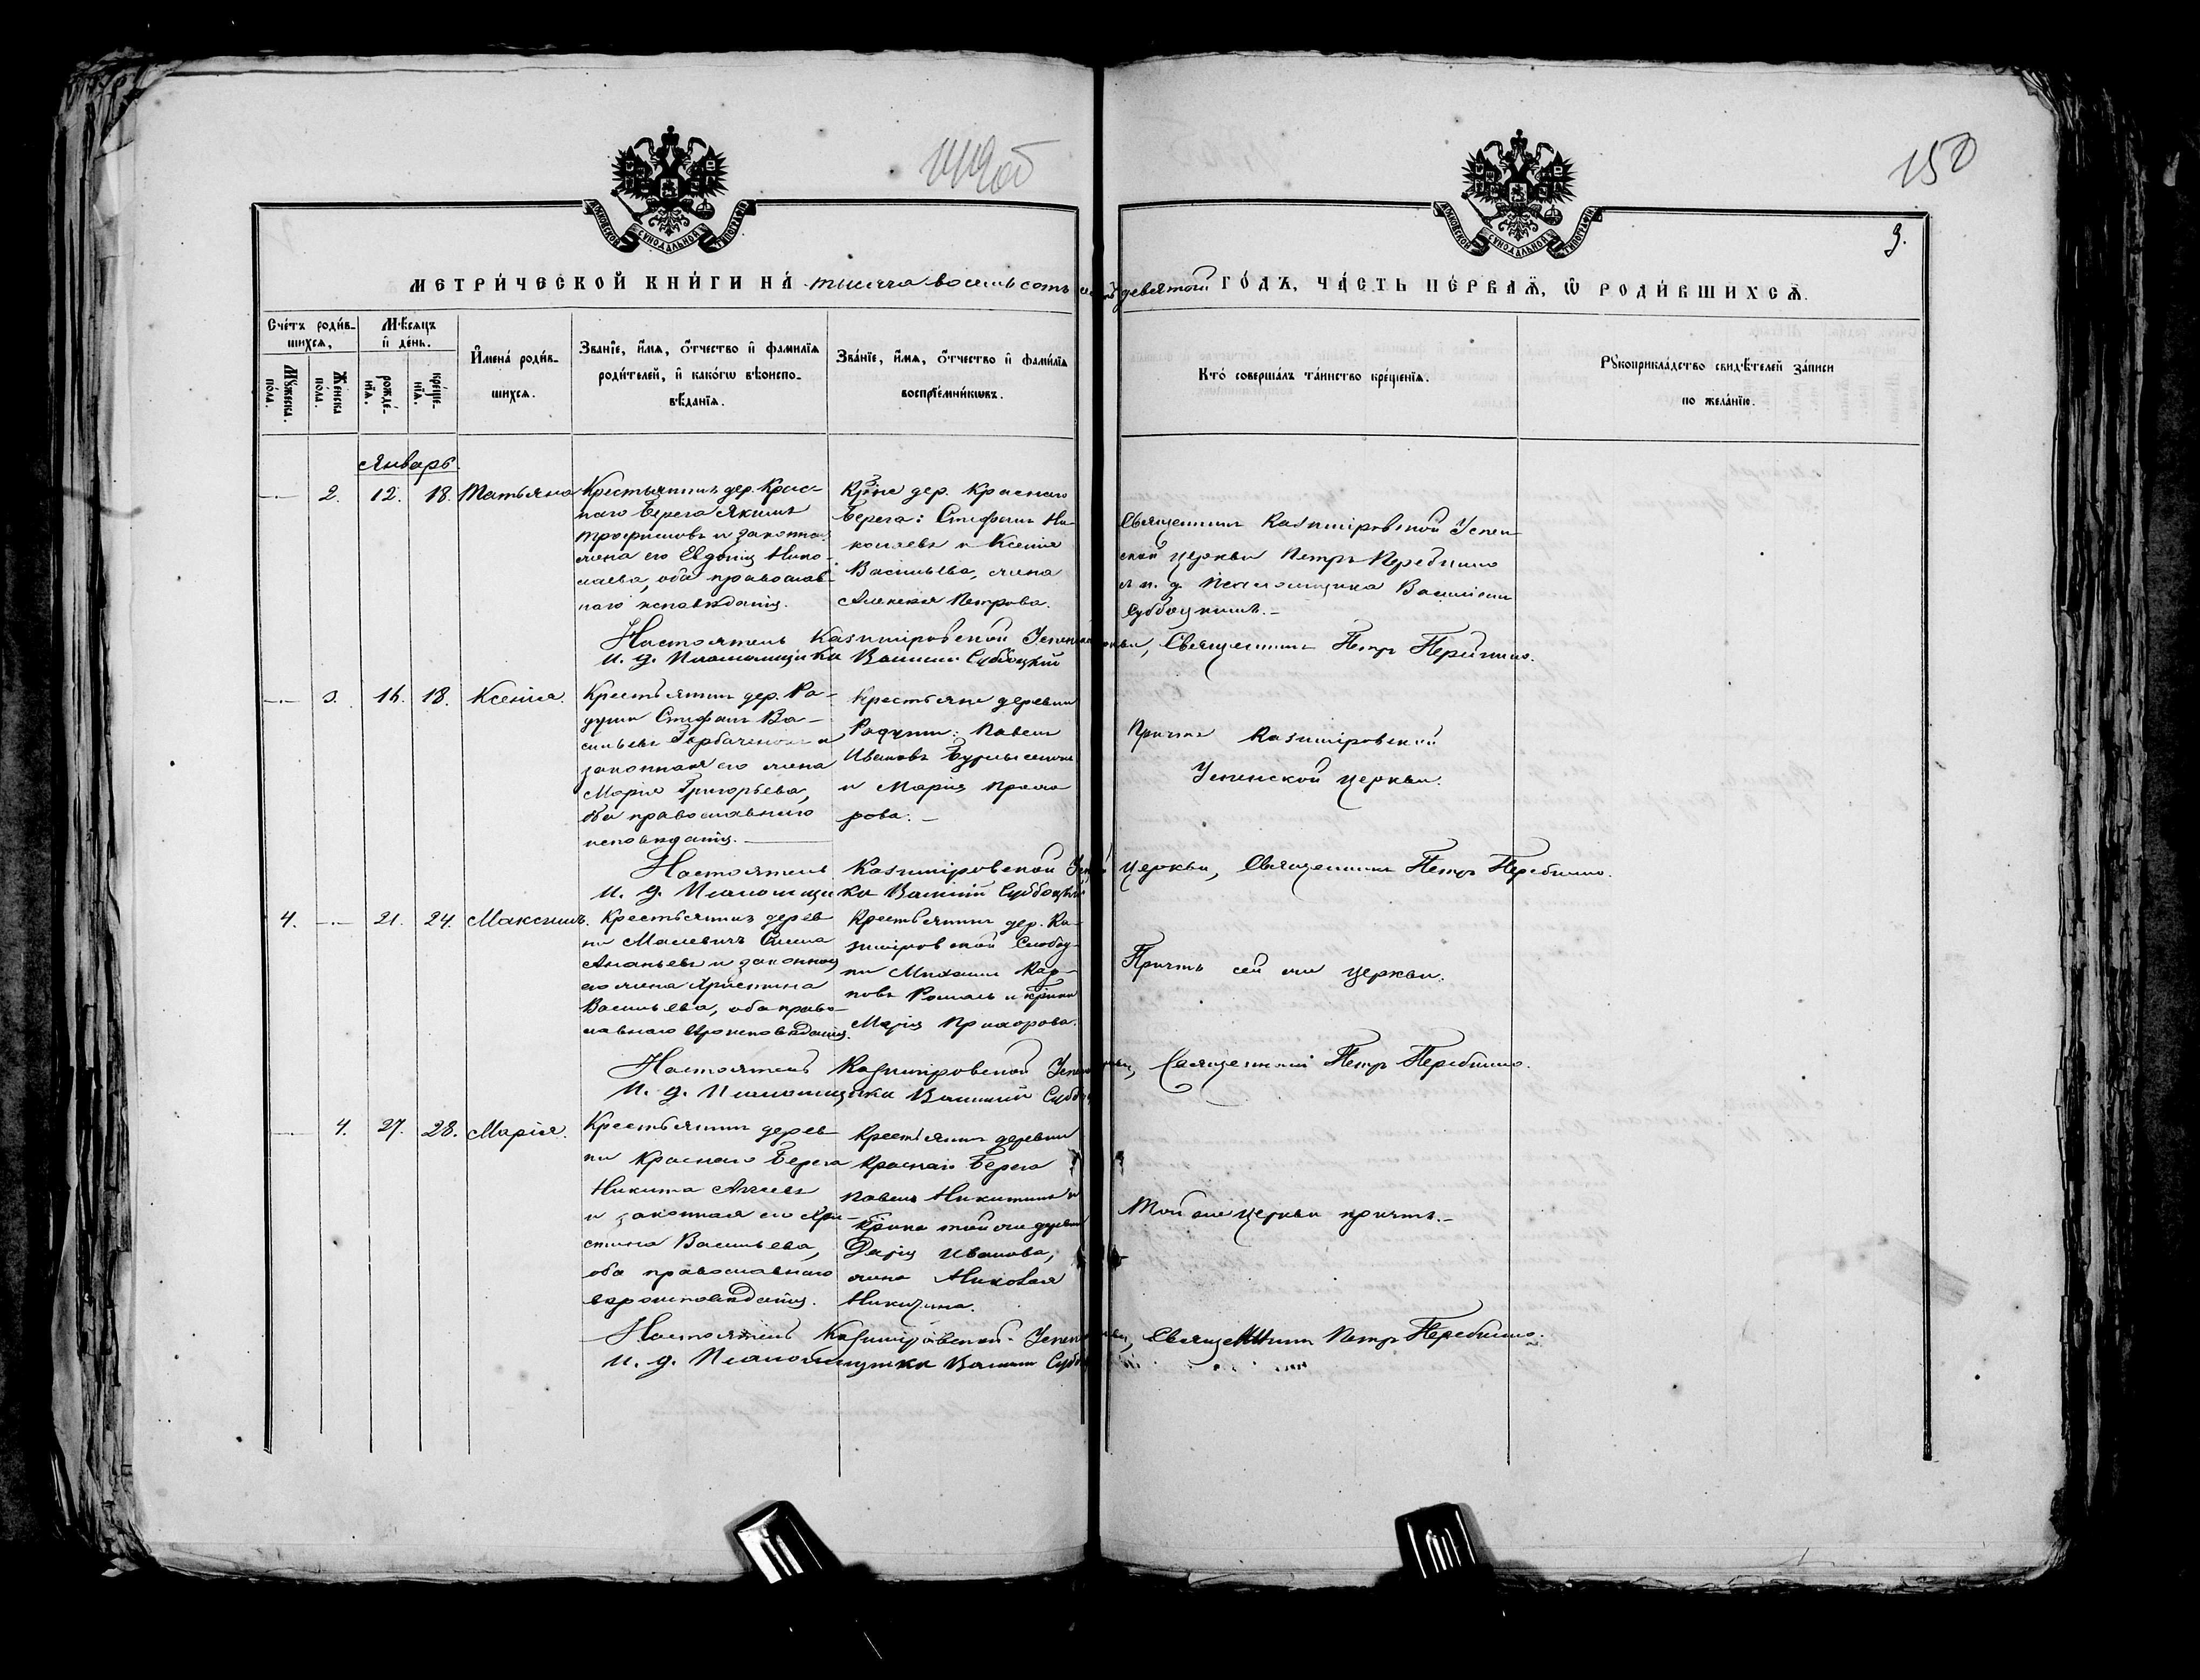 149об
150
МОСКОВСКОЙ СѴНОДАЛЬНОЙ ТИПОГРАФІИ
МОСКОВСКОЙ СѴНОДАЛЬНОЙ ТИПОГРАФІИ
3.
МЕТРИ́ЧЕСКОЙ КНИ́ГИ НА́ тысяча восемьсотъ девятый ГО́ДЪ, ЧА́СТЬ ПЕ́РВАѦ, Ѿ РОДИ́ВШИХСѦ.
Сче́тъ роди́в-
шихсѧ,
Мꙋ́жеска по́ла.
Же́нска по́ла.
Мѣ́сѧцъ
и҆ де́нь.
рожде́-
нїѧ.
креще́-
нїѧ.
И҆мена̀ роди́в-
шихсѧ.
Зва́нїе, и҆́мѧ, ѻ҆́тчество и҆ фами́лїѧ
роди́телей, и҆ како́гѡ вѣроиспо-
вѣ́данїѧ.
Зва́нїе, и҆́мѧ, ѻ҆́тчество и҆ фами́лїѧ
воспрїе́мникѡвъ.
Кто̀ соверша́лъ та́инство креще́нїѧ.
Рꙋкоприкла́дство свидѣ́телей за́писи
по жела́нїю.
Январь.
2. 12. 18. Татьяна
Крестьянинъ дер. Крас-
наго Берега Якимъ
Трофимовъ и законная
жена его Евдокія Нико-
лаева, оба православ-
наго исповѣданія.
Кр-не дер. Краснаго
Берега: Стефанъ Ни-
колаевъ и Ксенія
Васильева, жена
Алексея Петрова.
Священникъ Казимировской Успен-
ской церкви Петръ
и. д. Псаломщика Василіемъ
Субботскимъ.
Настоятель Казимировской Успенской церкви, Священникъ Петръ
И. д. Псаломщика Василій Субботскій
3. 16. 18. Ксенія.
Крестьянинъ дер. Ра-
души Стефанъ Ва-
сильевъ Горбаченокъ и
законная его жена
Марія Григорьева,
оба православнаго
исповѣданія.
Крестьяне деревни
Радуши: Павелъ
Ивановъ
и Марія Прохо-
рова.
Причтъ Казимировской
Успенской церкви.
Настоятель Казимировской Успен церкви, Священникъ Петръ
И. д. Псаломщика Василій Субботскій
4. 21. 24. Максимъ.
Крестьянинъ дерев-
ни Малевичъ
Ананьевъ и законная
его жена Христина
Васильева, оба право-
славнаго вѣроисповѣданія.
Крестьянинъ дер. Ка-
зимировской Слобод-
ки Михаилъ Кар-
повъ и кр-нка
Марія Прохорова.
Причтъ сей же церкви.
Настоятель Казимировской Успен церкви, Священникъ Петръ
И. д. Псаломщика Василій Суббот
4. 27. 28. Марія.
Крестьянинъ дерев-
ни Краснаго Берега
Никита
и законная его Хри-
стина Васильева,
оба православнаго
вѣроисповѣданія.
Крестьянинъ деревни
Краснаго Берега
Павелъ Никитинъ и
кр-нка той же деревни
Дарія Иванова,
жена Николая
Никитина.
Той же церкви причтъ.
Настоятель Казимировской Успен церкви, Священникъ Петръ
И. д. Псаломщика Василій Суббот